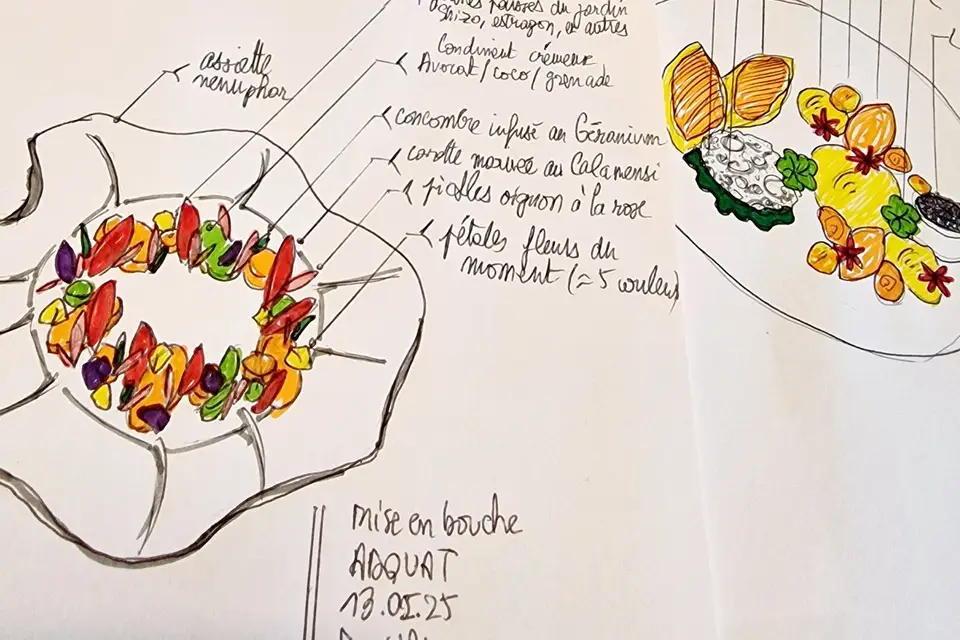 pousses du jardin
shizo, estragon, en autres
Condiment crémeux
Avocat/coco/grenade
assiette
nenuphar
concombre infusé au Géranium
carotte marinée au Calamensi
pickles oignon à la rose
pétales fleurs du
moment (≈ 5 couleurs)
mise en bouche
ADQUAT
13.05.25